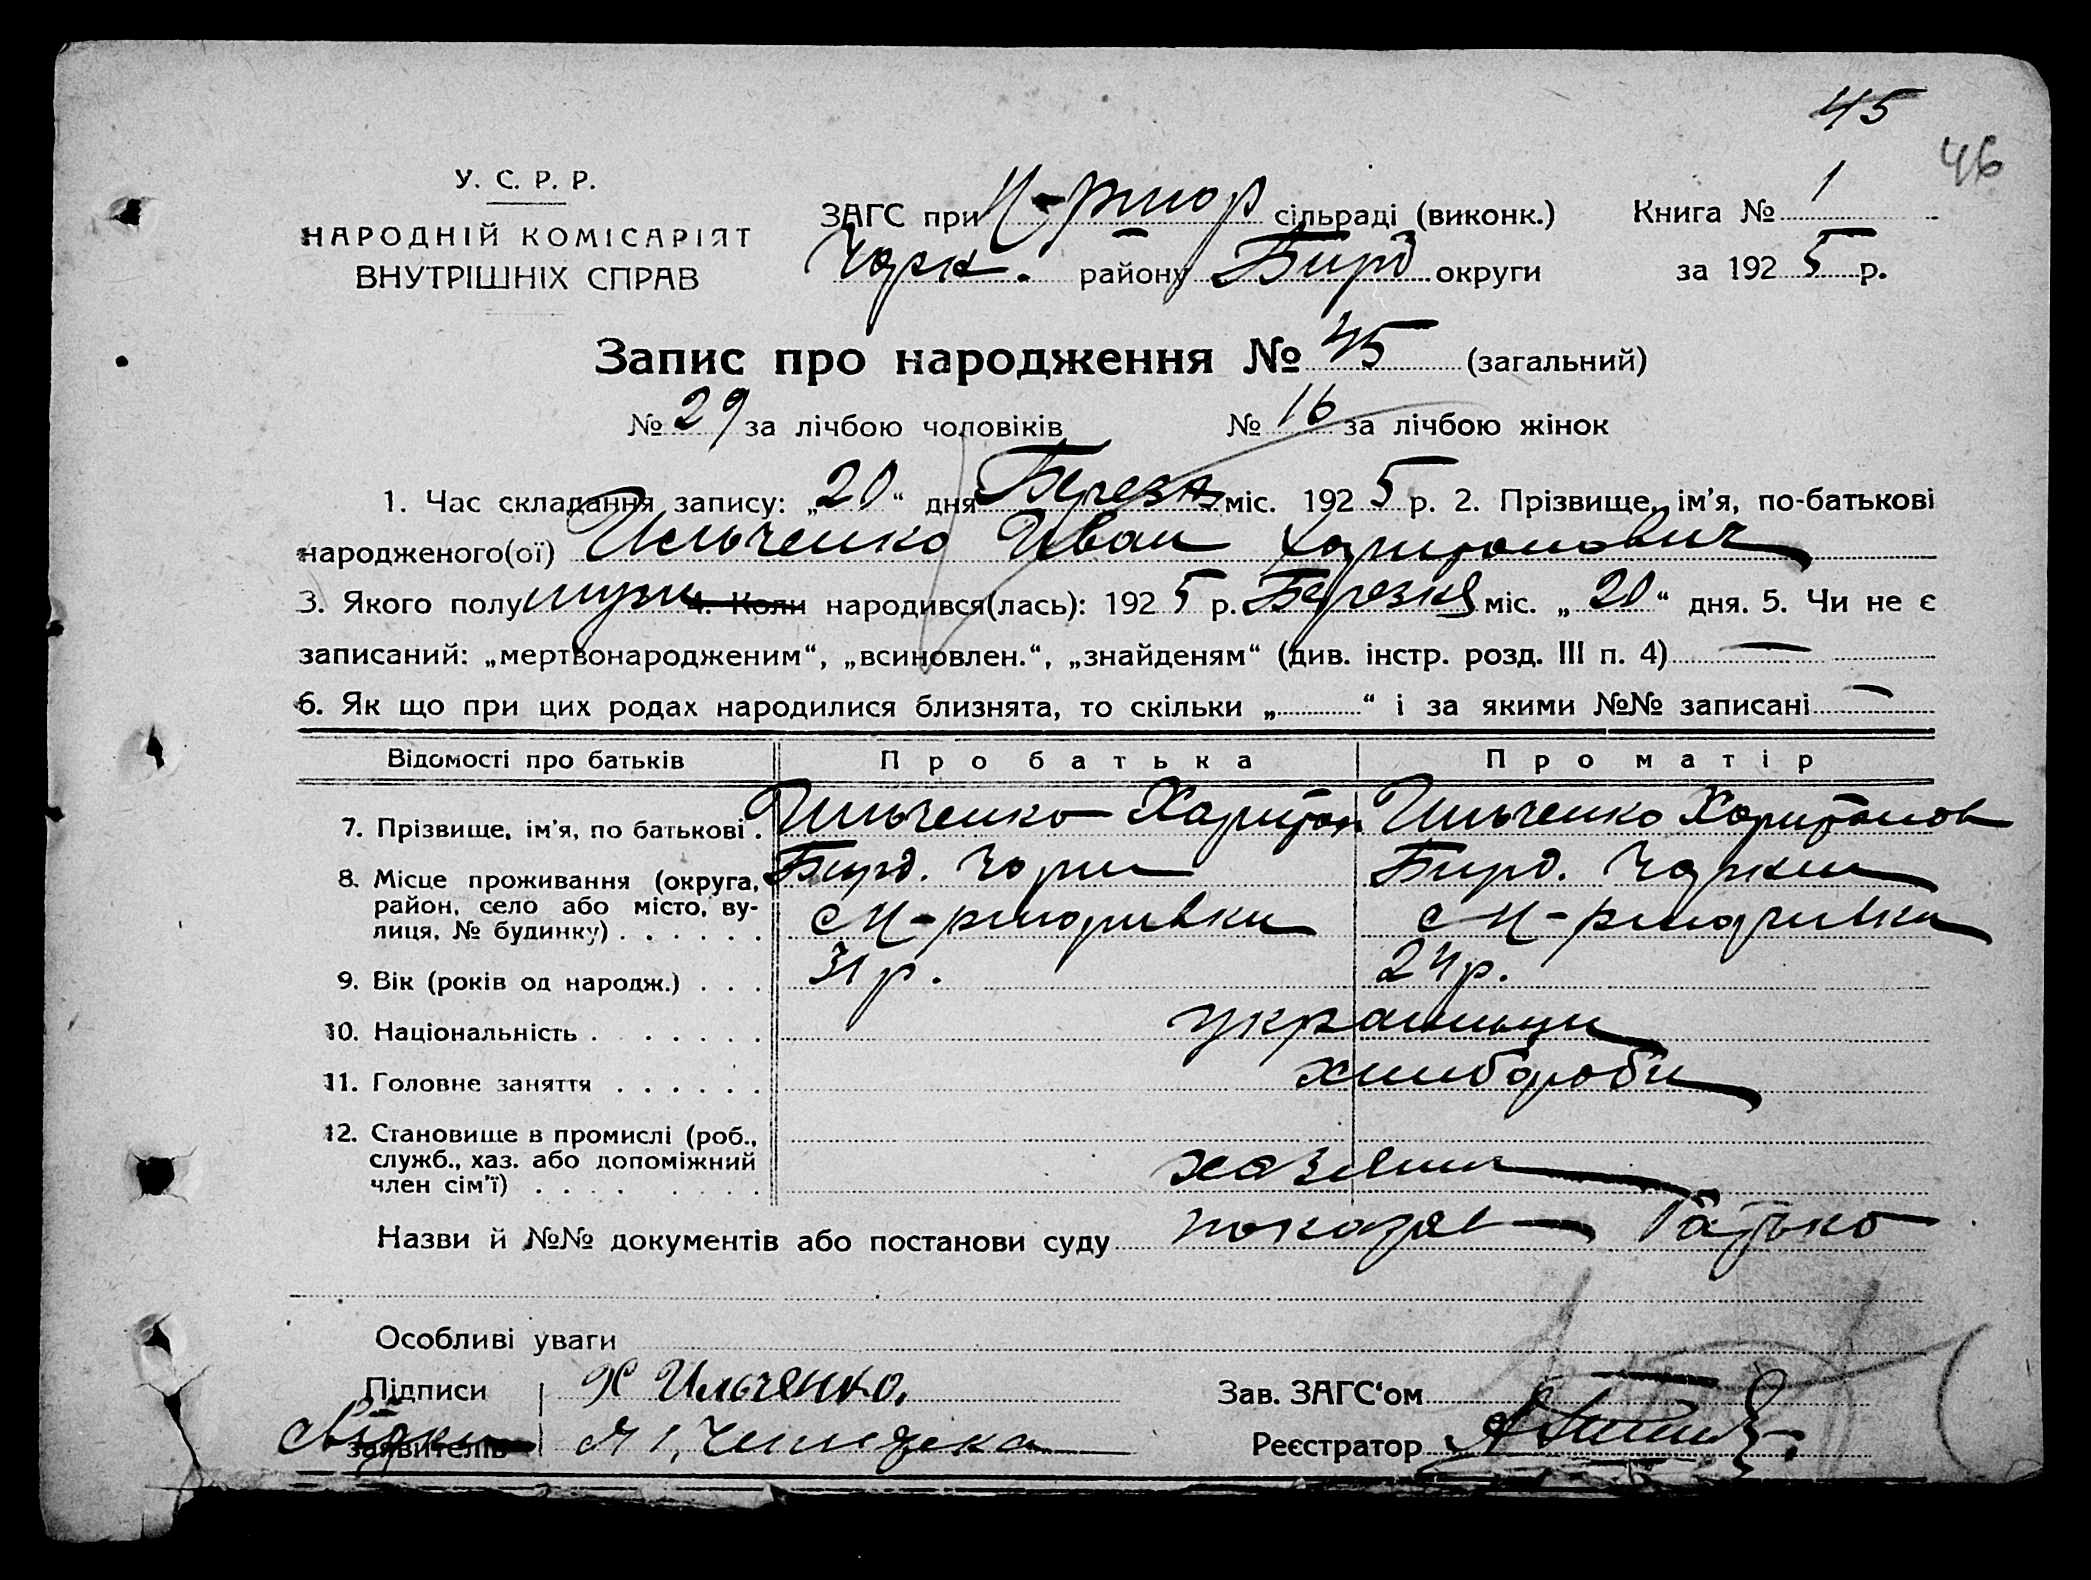 45
46
У. С. Р. Р.
НАРОДНІЙ КОМІСАРІЯТ
ВНУТРІШНІХ СПРАВ
ЗАГС при сільраді (виконк.) Книга № 1
району Бирд округи за 192 5 р.
Запис про народження № 45 (загальний)
№ 29 за лічбою чоловіків № 16 за лічбою жінок
1. Час складання запису: „20“ дня Березня міс. 192 5 р. 2. Прізвище, ім'я, по-батькові
народженого(ої) Ильченко Иван Харитонович
3. Якого полу муж 4. Коли народився(лась): 192 5 р. Березня міс. „20“ дня. 5. Чи не є
записаний: „мертвонародженим“, „всиновлен.“, „знайденям“ (див. інстр. розд. III п. 4) —
6. Як що при цих родах народилися близнята, то скільки „ “ і за якими №№ записані —
Відомості про батьків Про батька Про матір
7. Прізвище, ім'я, по батькові . Ильченко Харитон Ильченко
8. Місце проживання (округа, Бирд. Бирд.
район, село або місто, ву-
лиця, № будинку) . . . . . .
9. Вік (років од народж.) . . . 31 р. 24 р.
10. Національність . . . . . . українци
11. Головне заняття . . . . . . хлибороби
12. Становище в промислі (роб.,
служб., хаз. або допоміжний хазяин
член сім'ї) . . . . . . . .
Назви й №№ документів або постанови суду батько
Особливі уваги
Підписи Х Ильченко.
заявителів Свідки
Зав. ЗАГС'ом
Реєстратор